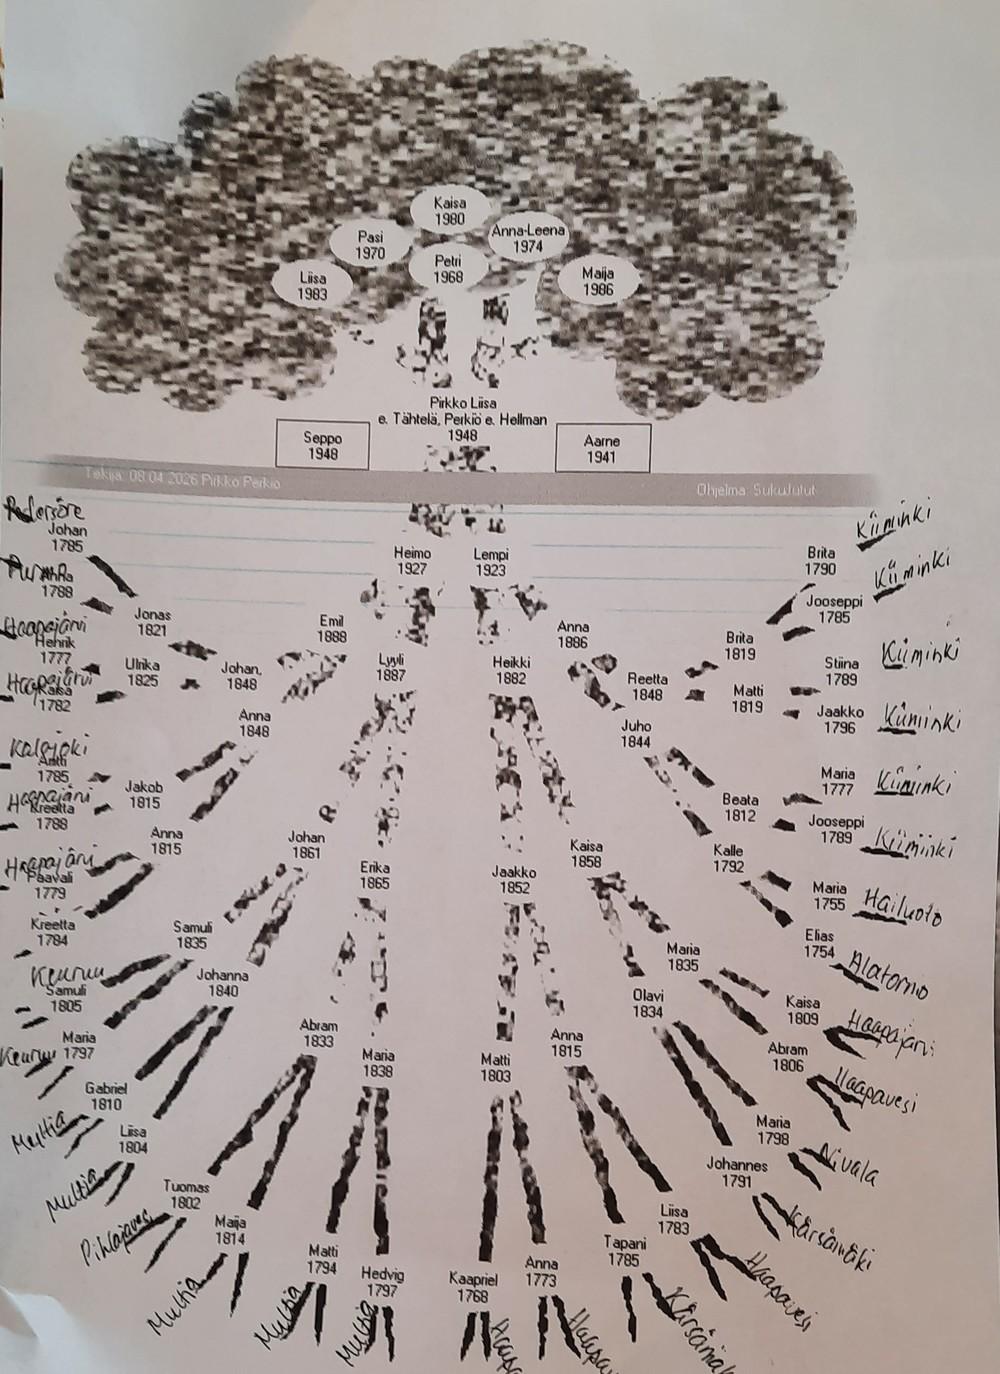 Kaisa
1980
Pasi
1970
Anna-Leena
1974
Petri
1968
Liisa
1983
Maija
1986
Pirkko Liisa
e. Tähtelä, Perkiö e. Hellman
1948
Seppo
1948
Aarne
1941
Tekijä: 08.04.2026 Pirkko Perkiö
Ohjelma: SukuJutut
Johan
1785
1788
Haapajärvi
Henrik
1777
Haapajärvi
Kaisa
1782
Jonas
1821
Ulrika
1825
Johan,
1848
Emil
1888
Heimo
1927
Lempi
1923
Lyyli
1887
Heikki
1882
Anna
1886
Brita
1790
Kiiminki
Jooseppi
1785
Kiiminki
Brita
1819
Stiina
1789
Kiiminki
Reetta
1848
Matti
1819
Jaakko
1796
Kiiminki
Anna
1848
Juho
1844
Antti
1785
Jakob
1815
Haapajärvi
Kreetta
1788
Maria
1777
Kiiminki
Beata
1812
Jooseppi
1789
Kiiminki
Anna
1815
Haapajärvi
Paavali
1779
Johan
1861
Erika
1865
Jaakko
1852
Kaisa
1858
Kalle
1792
Maria
1755
Hailuoto
Kreetta
1784
Samuli
1835
Elias
1754
Alatornio
Keuruu
Samuli
1805
Johanna
1840
Maria
1835
Olavi
1834
Kaisa
1809
Haapajärvi
Maria
1797
Keuruu
Abram
1833
Maria
1838
Matti
1803
Anna
1815
Abram
1806
Haapavesi
Gabriel
1810
Multia
Liisa
1804
Multia
Maria
1798
Nivala
Johannes
1791
Kärsämäki
Tuomas
1802
Pihlajavesi
Maija
1814
Multia
Liisa
1783
Haapavesi
Matti
1794
Multia
Hedvig
1797
Multia
Kaapriel
1768
Anna
1773
Tapani
1785